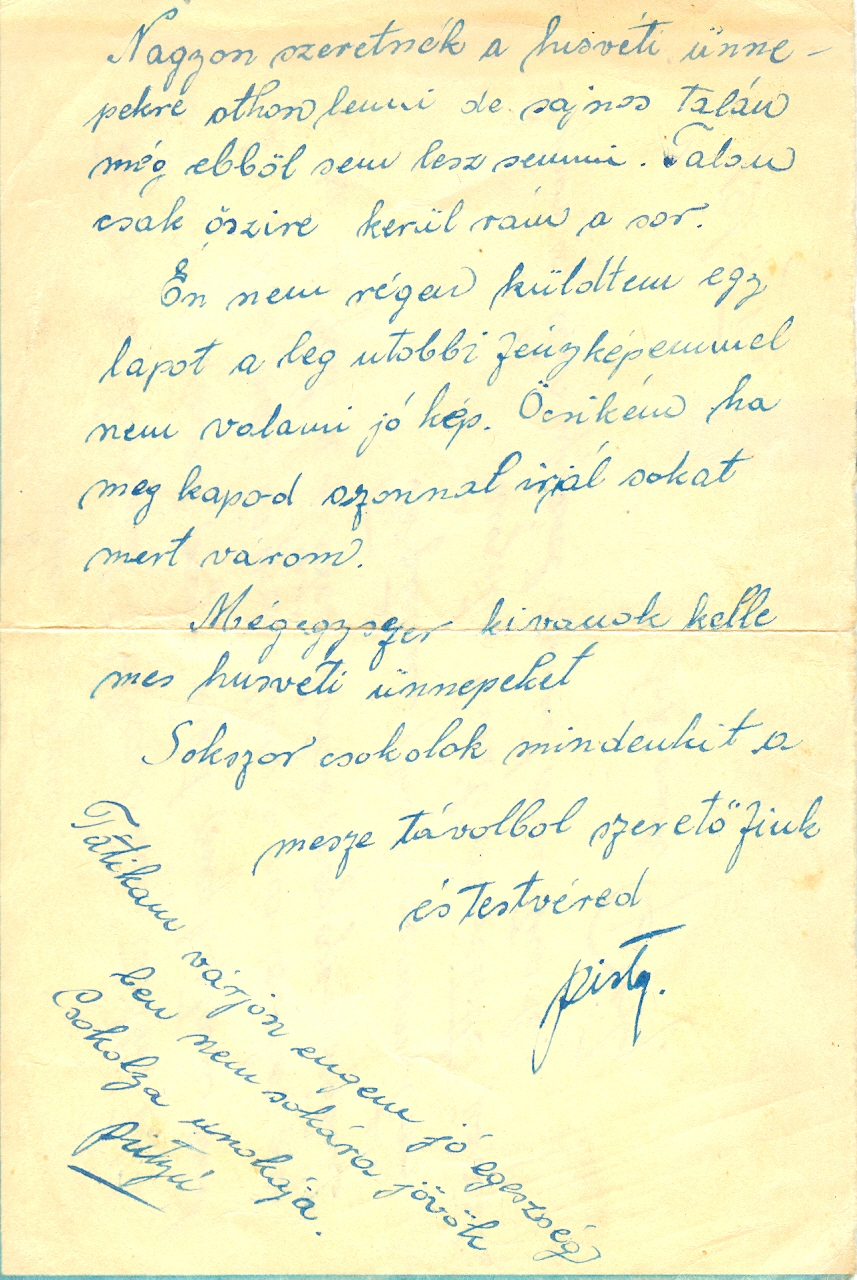 Nagyon szeretnék a husvéti ünne-
pekre othon lenni de sajnos talán
még ebből sem lesz semmi. Talan
csak őszire kerül rám a sor.
Én nem régen küldtem egy
lapot a leg utobbi fényképemmel
nem valami jó kép. Öcsikém ha
meg kapod azonnal irjál sokat
mert várom.
Mégegyszer kivanok kelle
mes husvéti ünnepeket
Sokszor csokolok mindenkit a
mesze távolbol szerető fiuk
és testvéred
Pista.
Tátikam várjon engem jó egeszség
ben nem sokára jövök
Csokolza unokája.